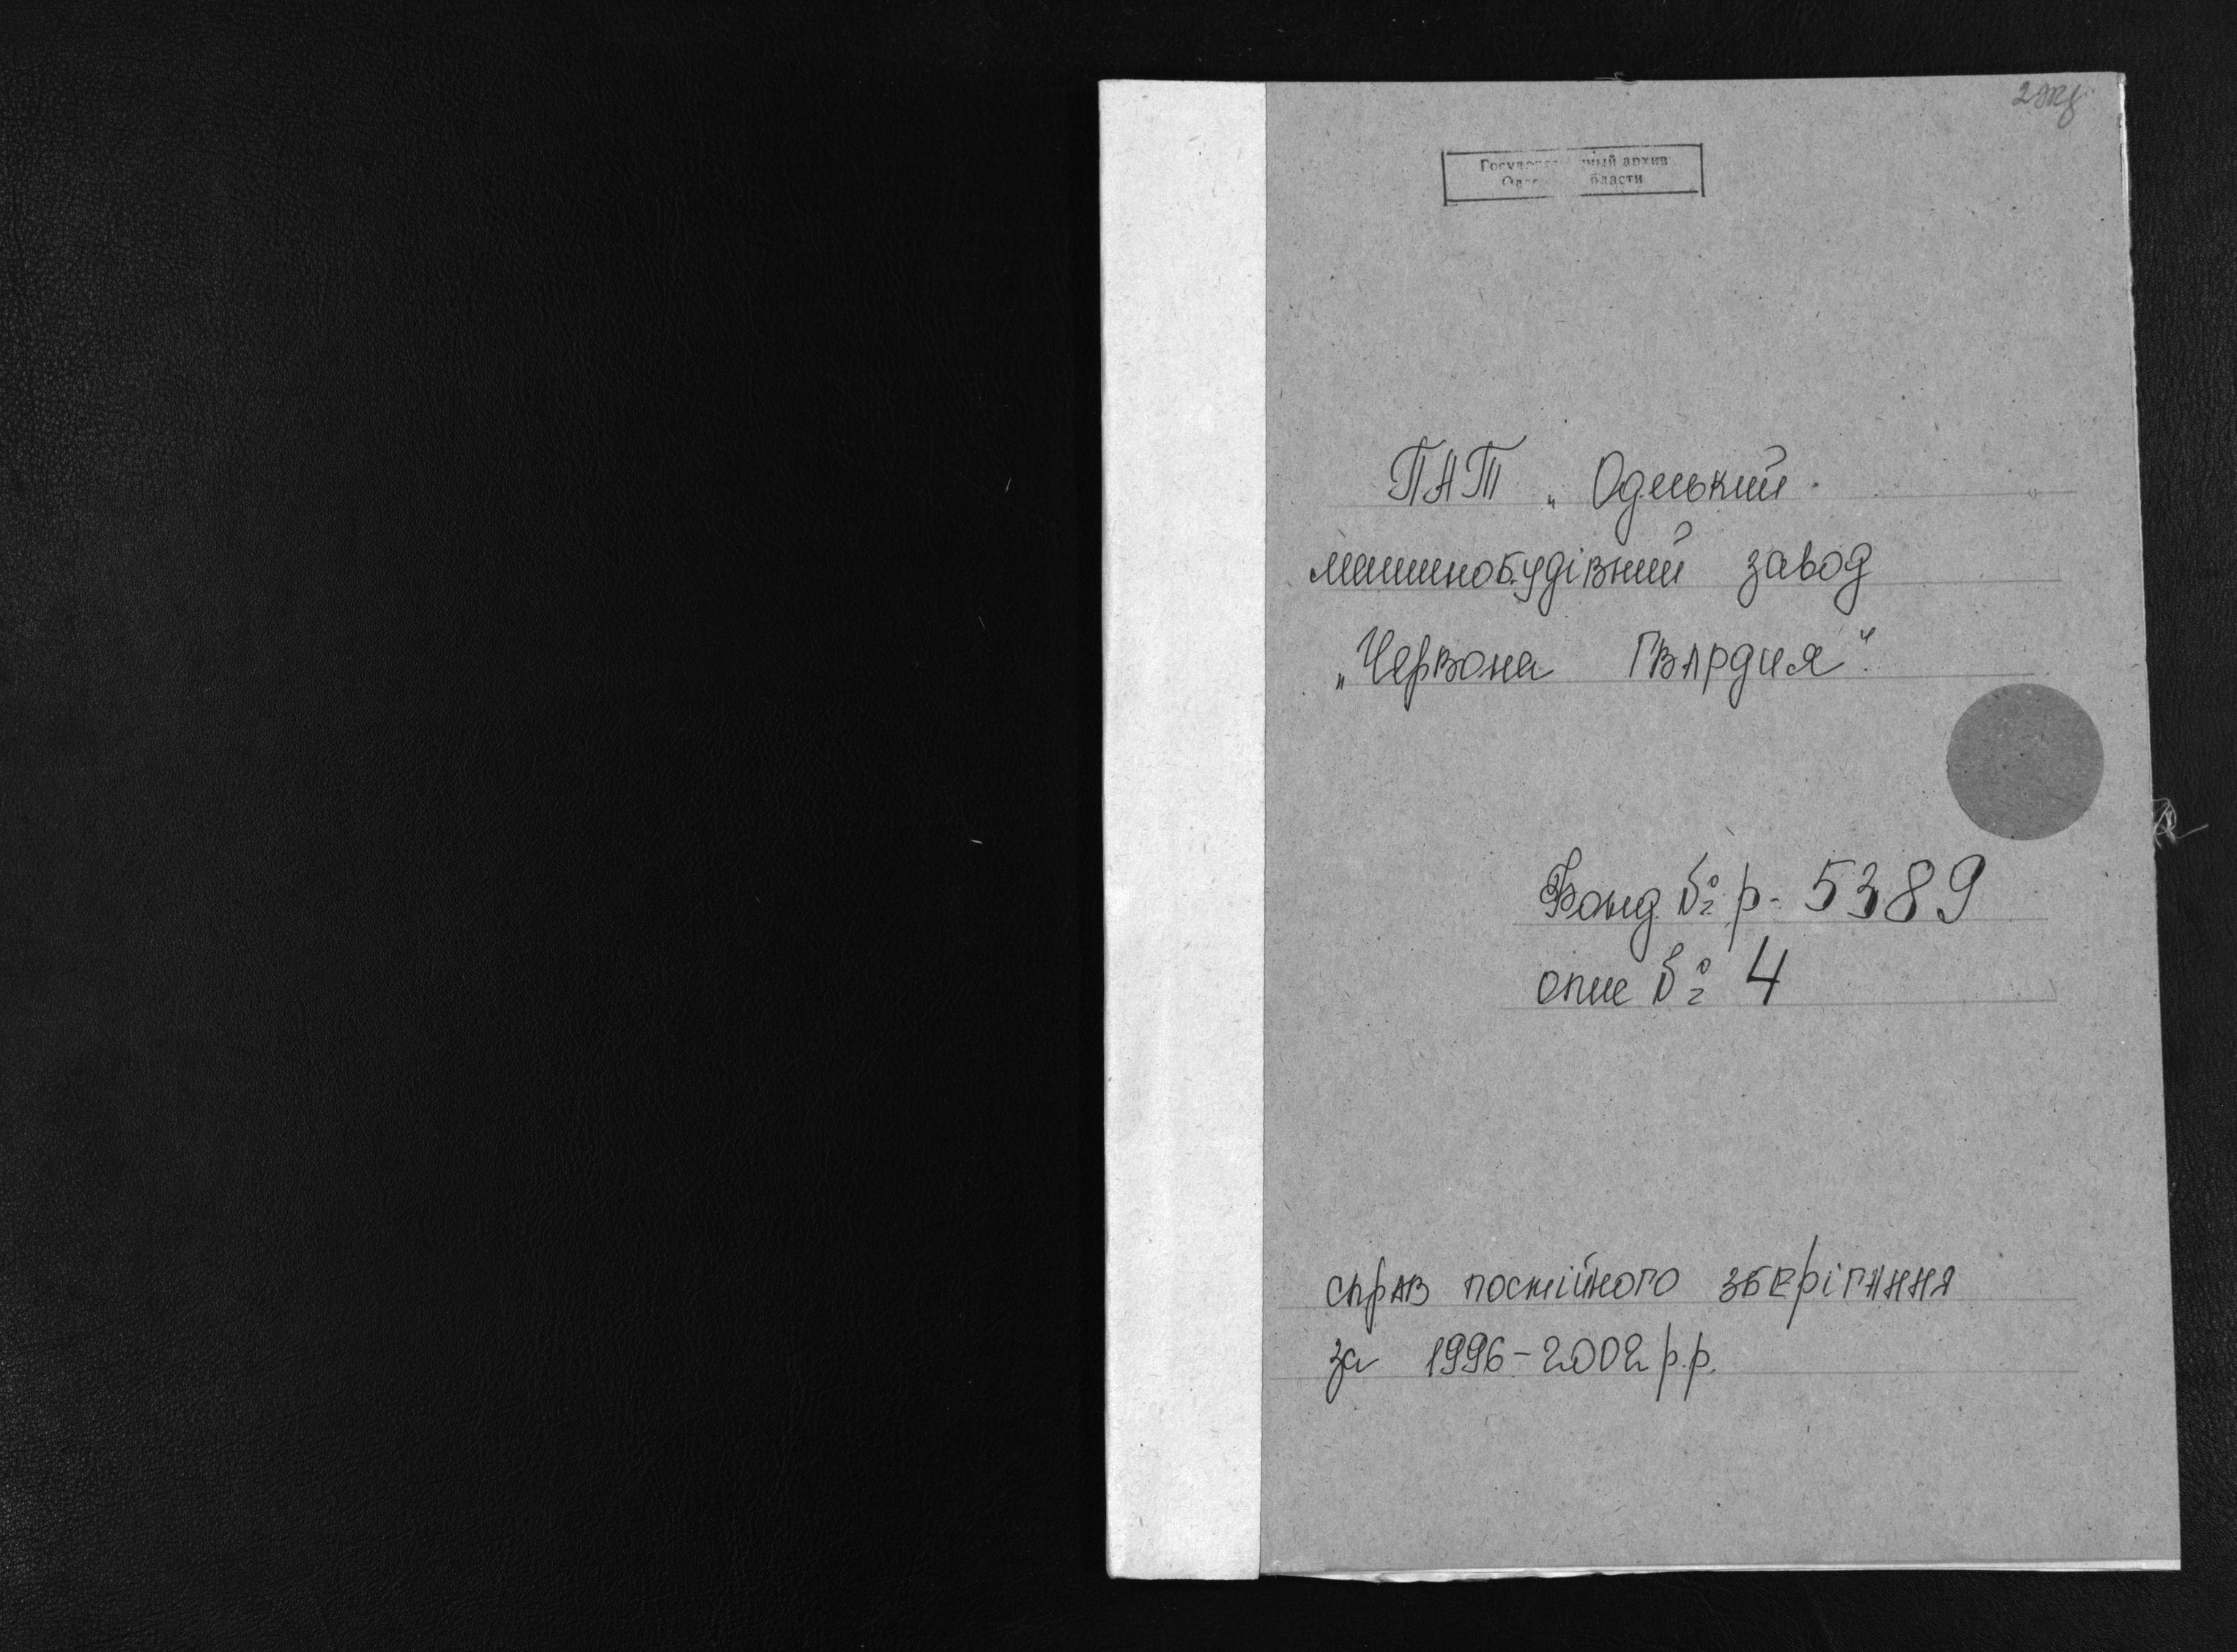 2 экз.
Государст ный архив
Одес бласти
ПАТ „Одеський
машинобудівний завод
„Червона Гвардия"
Фонд № р- 5389
опис № 4
справ постійного зберігання
за 1996-2002 р.р.